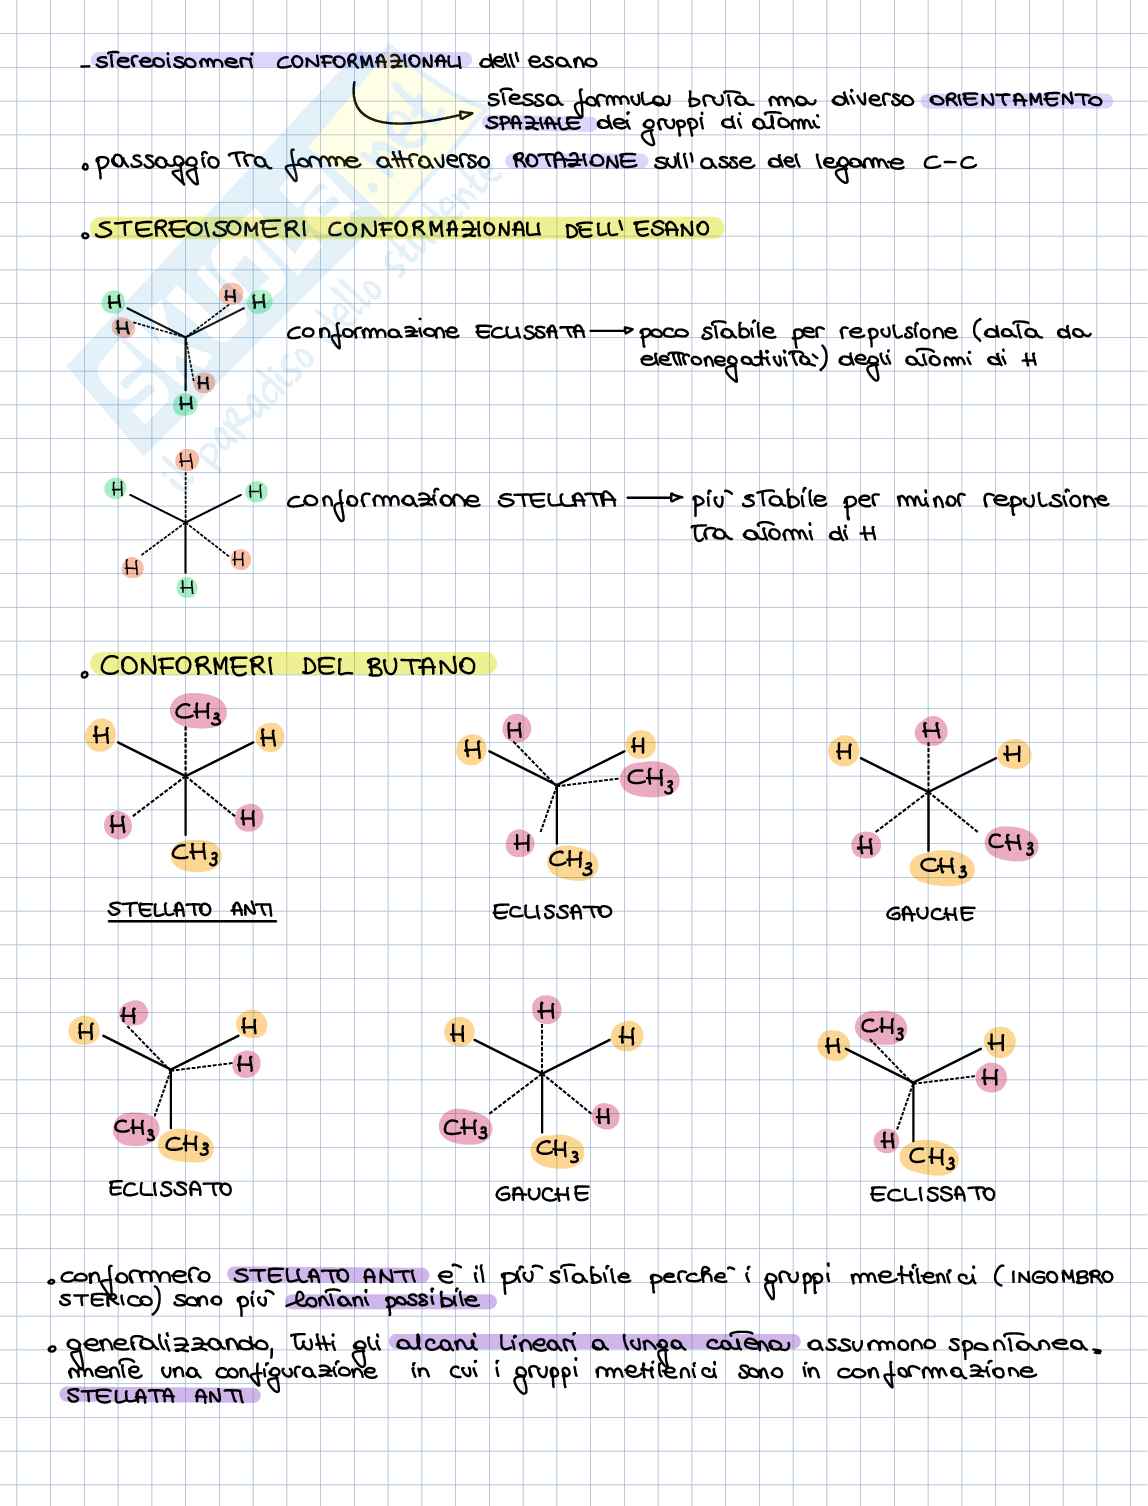 - stereoisomeri CONFORMAZIONALI dell'esano
stessa formula bruta ma diverso ORIENTAMENTO
SPAZIALE dei gruppi di atomi
• passaggio tra forme attraverso ROTAZIONE sull'asse del legame C-C
• STEREOISOMERI CONFORMAZIONALI DELL'ESANO
H H H
H
conformazione ECLISSATA → poco stabile per repulsione (data da
elettronegatività) degli atomi di H
H
H
H
H H
conformazione STELLATA → più stabile per minor repulsione
tra atomi di H
H H
H
• CONFORMERI DEL BUTANO
CH3
H H
H H
CH3
STELLATO ANTI
H
H H
CH3
H
CH3
ECLISSATO
H
H H
H CH3
CH3
GAUCHE
H
H H
H
CH3
CH3
ECLISSATO
H
H H
CH3 H
CH3
GAUCHE
CH3
H H
H
H
CH3
ECLISSATO
• conformero STELLATO ANTI è il più stabile perchè i gruppi metilenici (INGOMBRO
STERICO) sono più lontani possibile
• generalizzando, tutti gli alcani lineari a lunga catena assumono spontanea-
mente una configurazione in cui i gruppi metilenici sono in conformazione
STELLATA ANTI
SKUOLA.net
il paradiso dello studente